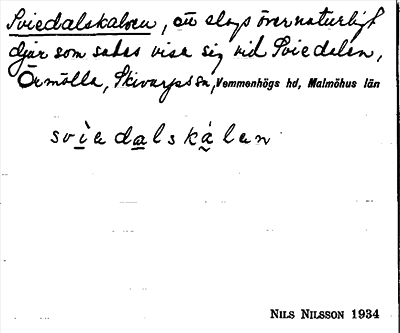 Sviedalskalven, ett slags övernaturligt
djur som sades visa sig vid Sviedalen,
Örmölla, Skivarps sn, Vemmenhögs hd, Malmöhus län
svìedalskálen
NILS NILSSON 1934